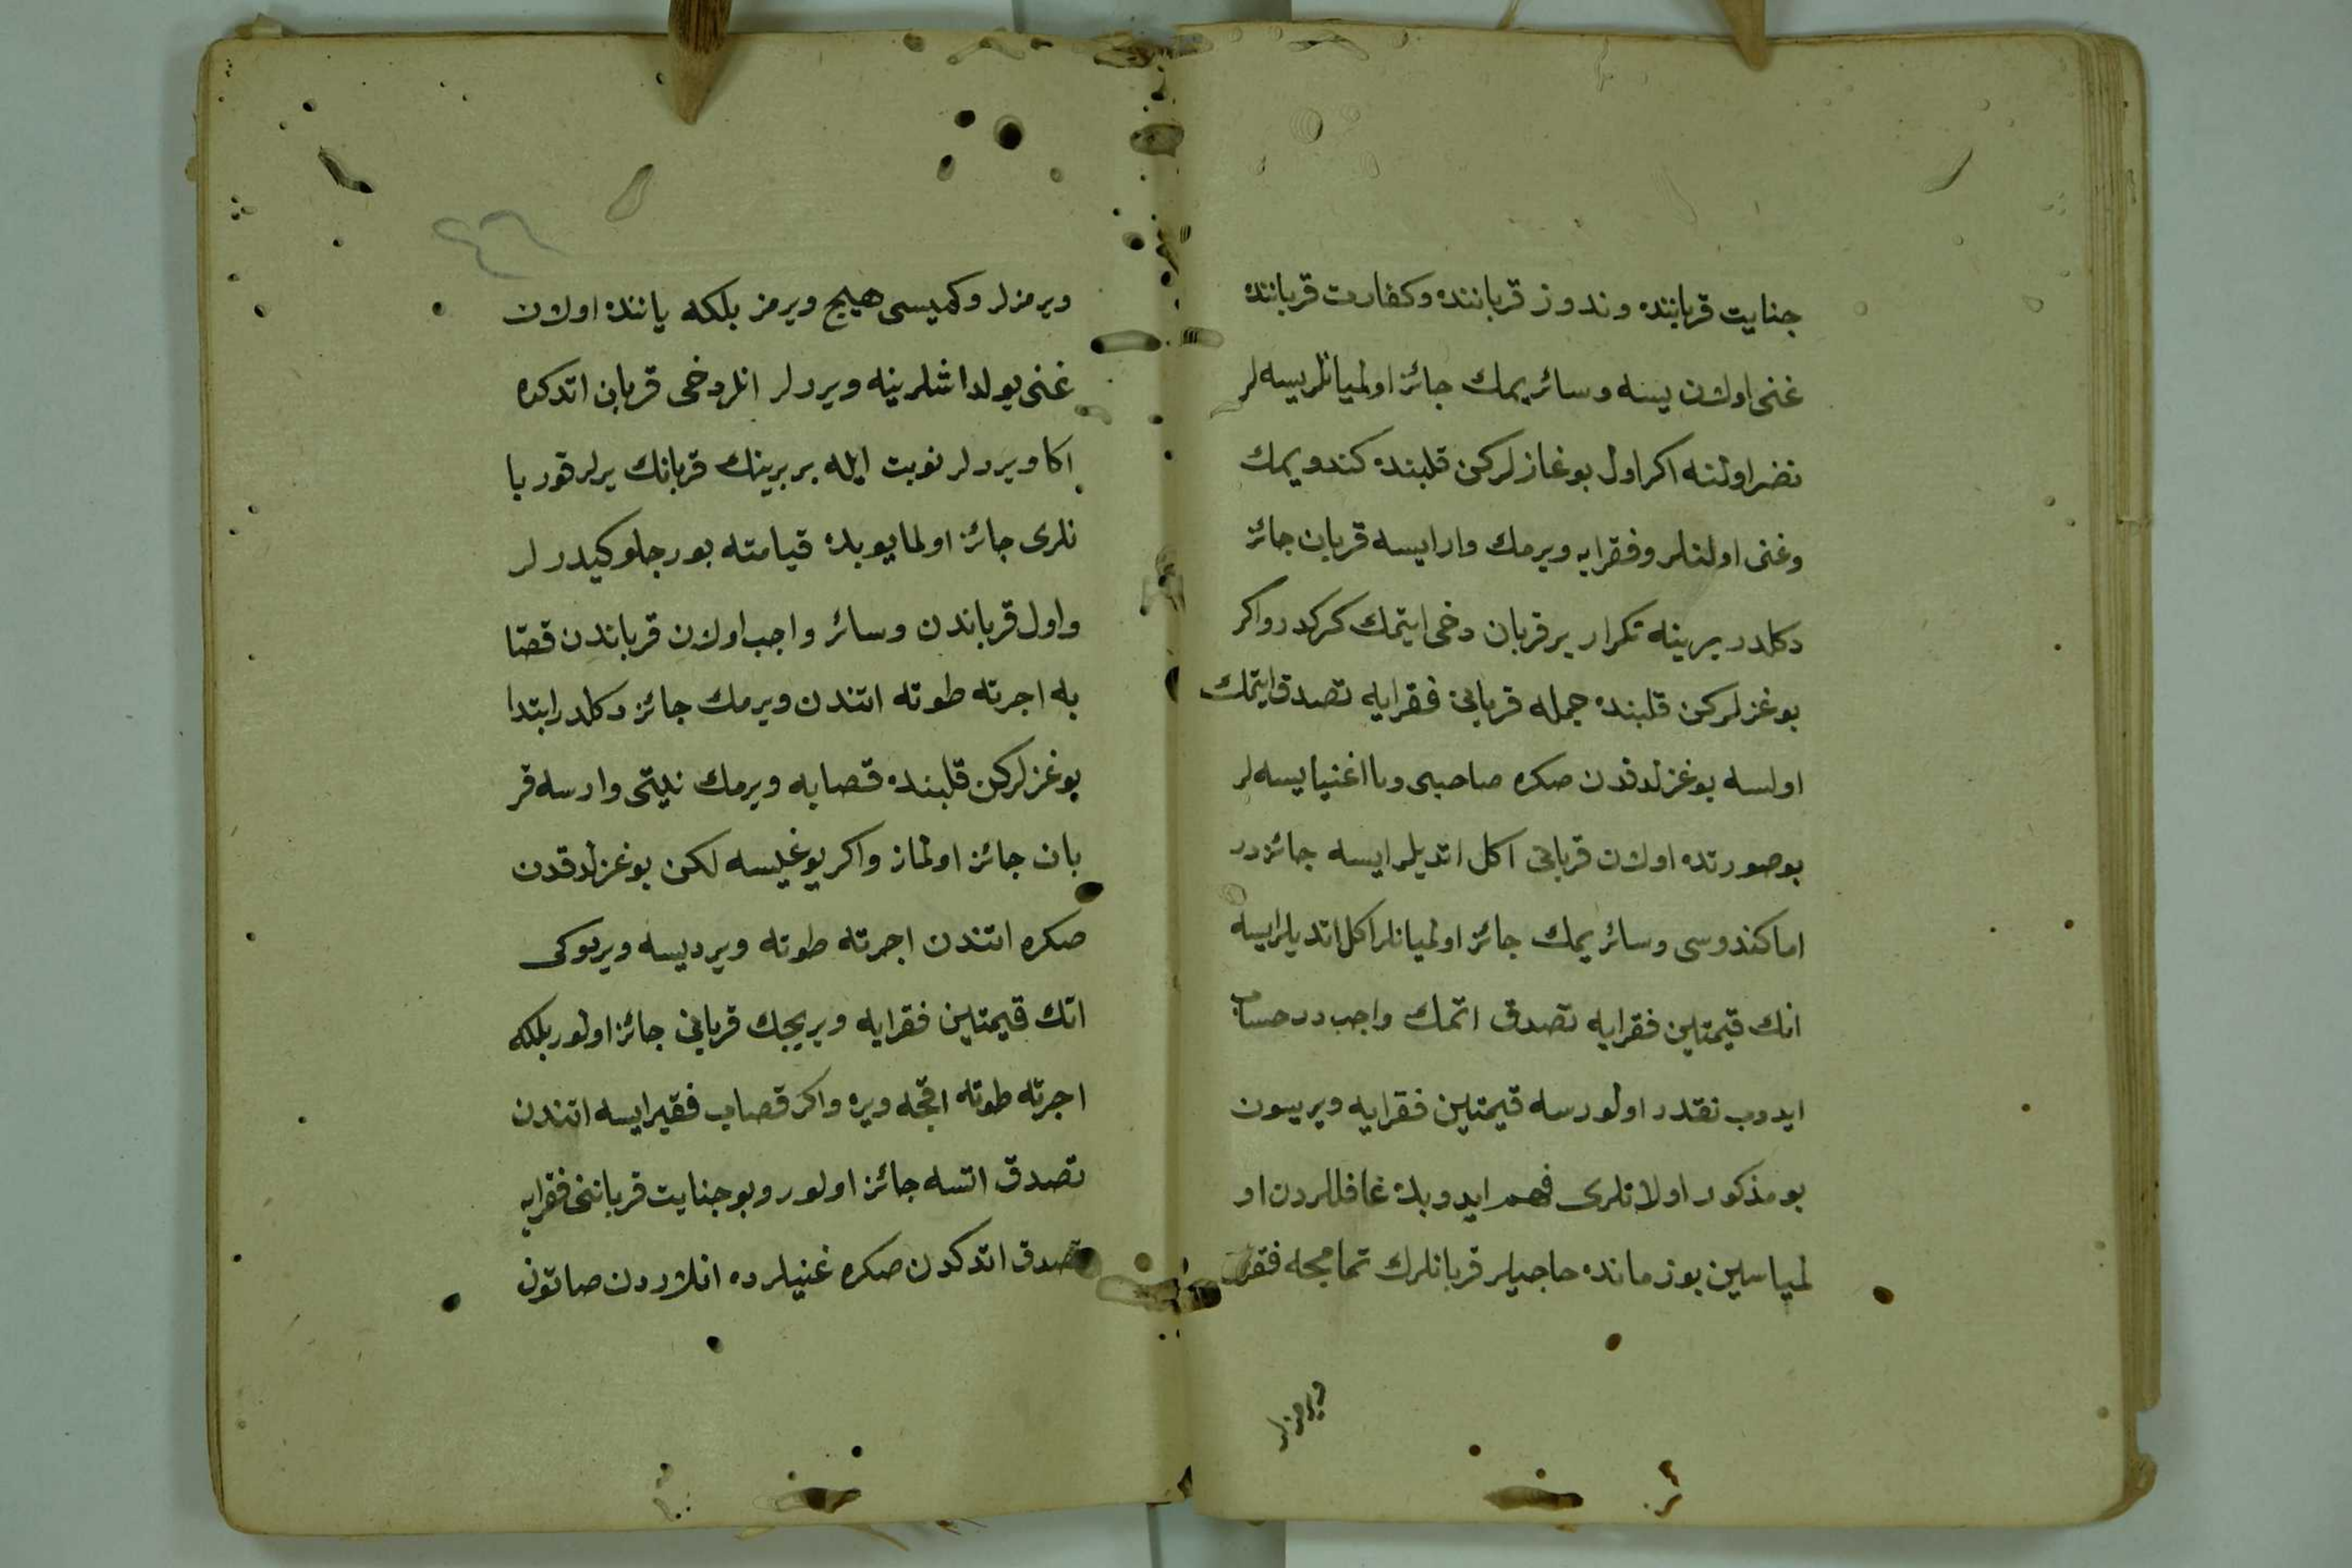 جنايت قرباننده ونذور قرباننده وكفارت قرباننده
غنى اولان ييسه وسائر يمك جائز اولميانلر ييسه لر
نضر اولنه اكر اول بوغازلركن قلبنده كندو يمك
وغنى اولنلر وفقرايه ويرمك وار ايسه قربان جائز
دكلدر يرينه تكرار بر قربان دخى ايتمك كركدر واكر
بوغزلركن قلبنده جمله قربانى فقرايه تصدق ايتمك
اولسه بوغزلدقدن صكره صاحبى ويا اغنيا ييسه لر
بو صورتده اولان قربانى اكل اتديلر ايسه جائزدر
اما كندوسى وسائر يمك جائز اولميانلر اكل اتديلر ايسه
انك قيمتلين فقرايه تصدق اتمك واجب در حساب
ايدوب نقدر اولورسه قيمتلين فقرايه ويريسون
بو مذكور اولانلرى فهم ايدوبده غافللردن او
لمياسين بو زمانده حاجيلر قربانلرك تمامجه فقرايه
ويرمزلر
٤٦
ويرمزلر وكميسى هيچ ويرمز بلكه ياننده اولان
غنى يولداشلرينه ويررلر انلر دخى قربان اتدكده
اكا ويررلر نوبت ايله بر برينك قربانك يرلر قوربا
نلرى جائز اولمايوبده قيامته بورجلو كيدرلر
واول قرباندن وسائر واجب اولان قرباندن قصا
به اجرته طوته اتندن ويرمك جائز دكلدر ابتدا
بوغزلركن قلبنده قصابه ويرمك نيتى وارسه قر
بان جائز اولماز واكر يوغيسه لكن بوغزلدقدن
صكره اتندن اجرته طوته ويرديسه ويردوكى
اتك قيمتلين فقرايه ويريجك قربانى جائز اولور بلكه
اجرته طوته اقچه ويره واكر قصاب فقير ايسه اتندن
تصدق اتسه جائز اولور وبو جنايت قرباننى فقرايه
تصدق اتدكدن صكره غنيلر ده انلاردن صاتون